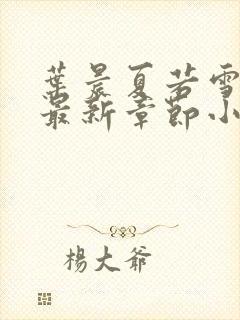 葉晨夏若雪
最新章節小
楊大爺